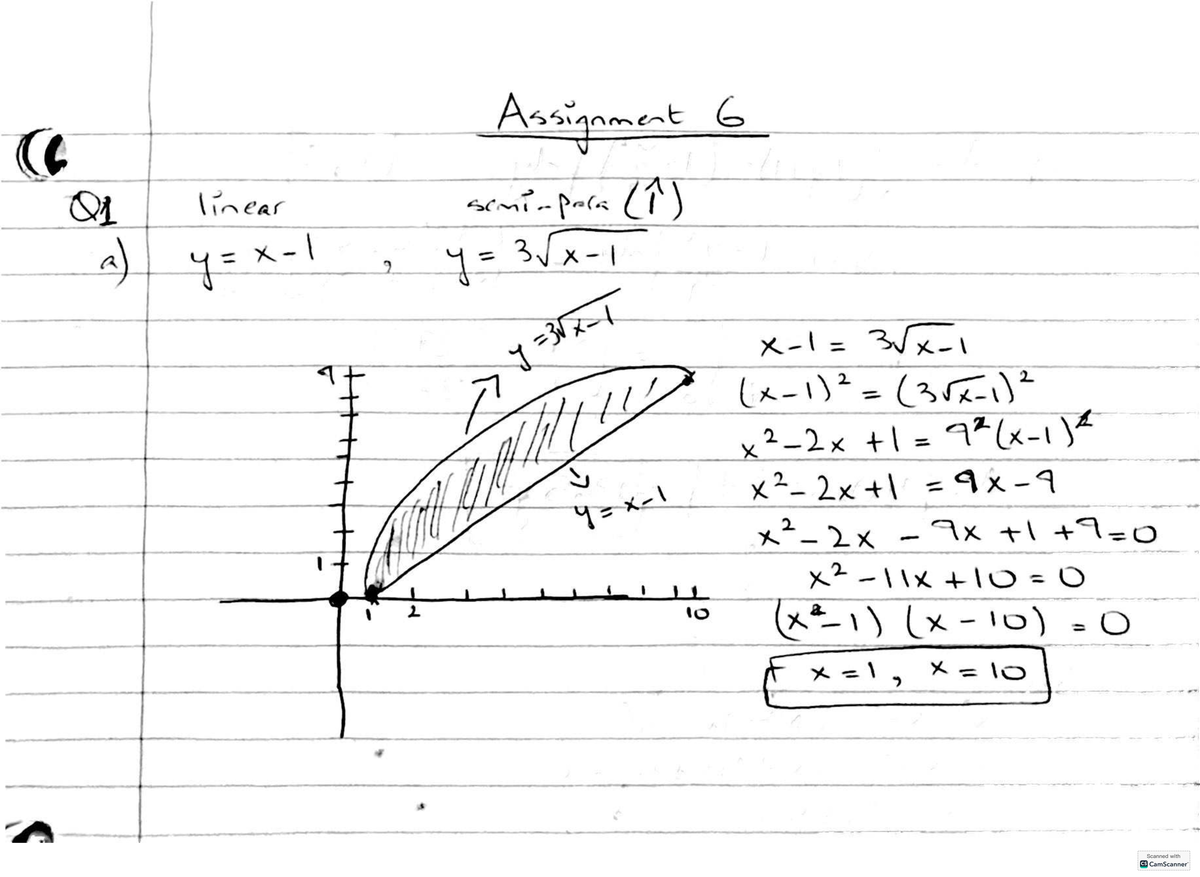 Assignment 6
Q1 linear semi-para (↑)
a) y = x-1 , y = 3√x-1
y = 3√x-1
9
y = x-1
1
1 2 10
x-1 = 3√x-1
(x-1)² = (3√x-1)²
x²-2x +1 = 9²(x-1)²
x²-2x+1 = 9x-9
x²-2x - 9x +1 +9=0
x²-11x+10=0
(x²-1) (x-10) = 0
x=1, x=10
Scanned with
CS CamScanner